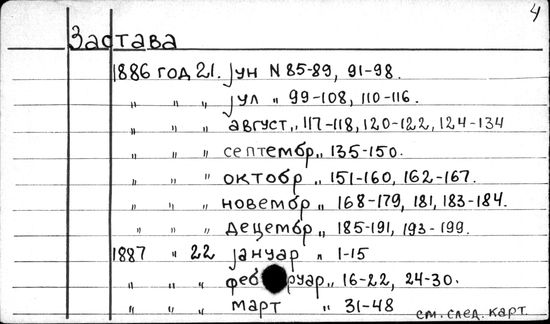 4
Застава
1886 год 21. јун N 85-89, 91-98.
„ „ „ јул „ 99-108, 110-116.
„ „ „ август „ 117-118, 120-122, 124-134
„ „ „ септембр „ 135-150.
„ „ „ октобр „ 151-160, 162-167.
„ „ „ новембр „ 168-179, 181, 183-184.
„ „ „ децембр „ 185-191, 193-199.
1887 „ 22 јануар „ 1-15
„ „ „ фебруар „ 16-22, 24-30.
„ „ „ март „ 31-48
см. след. карт.